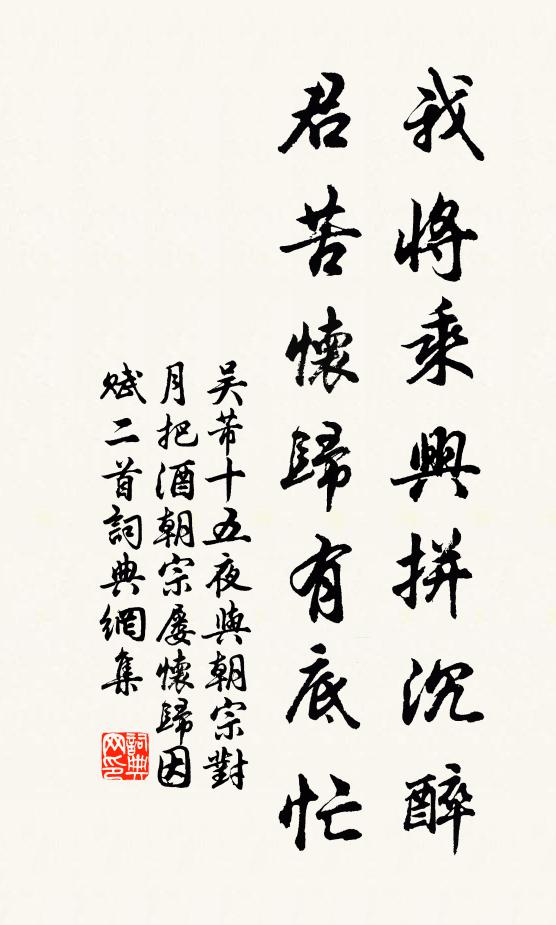 我將乘興拼沉醉
君苦懷歸有底忙
吴芾十五夜與朝宗對
月把酒朝宗屢懷歸因
賦二首詞典網集
詞典
网印